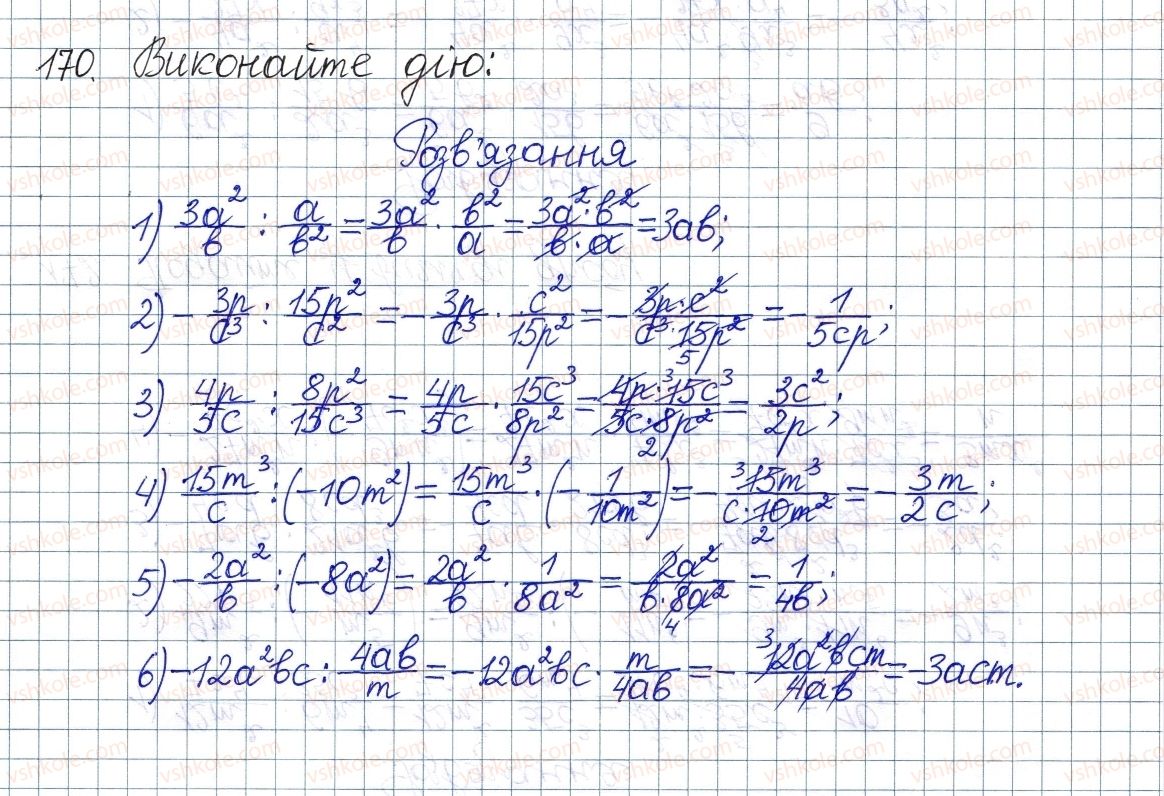 170. Виконайте дію:
Розв'язання
1) 3a²/b : a/b² = 3a²/b · b²/a = 3a²·b²/b·a = 3ab;
2) - 3p/c³ : 15p²/c² = - 3p/c³ · c²/15p² = - 3p·c²/c³·15p² 5 = - 1/5cp;
3) 4p/5c : 8p²/15c³ = 4p/5c · 15c³/8p² = 4p·³15c³/5c·8p² 2 = 3c²/2p;
4) 15m³/c : (-10m²) = 15m³/c · (- 1/10m²) = - ³15m³/c·10m² 2 = - 3m/2c;
5) - 2a²/b : (-8a²) = 2a²/b · 1/8a² = 2a²/b·8a² 4 = 1/4b;
6) -12a²bc : 4ab/m = -12a²bc · m/4ab = - ³12a²bcm/4ab = -3acm.